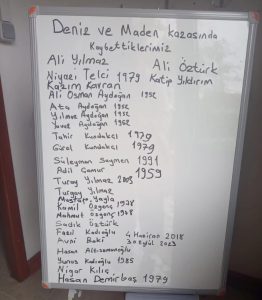 Deniz ve Maden kazasında
Kaybettiklerimiz
Ali Yılmaz Ali Öztürk
Niyazi Telci 1979 Katip Yıldırım
Kazım Kavran
Ali Osman Aydoğan 1952
Ata Aydoğan 1952
Yılmaz Aydoğan 1952
Yavuz Aydoğan 1962
Tahir Kundakçı 1979
Gürel Kundakçı 1979
Süleyman Saymen 1991
Adil Çamur 1959
Turay Yılmaz 2003
Turgay Yılmaz
Mustafa Yayla
Kamil Özgenç 1978
Mahmut Özgenç 1958
Sadık Öztürk
Fazıl Kadıoğlu 4 Haziran 2018
Avni Baki 30 Eylül 2023
Hasan
Yunus Kadıoğlu 1985
Nigar Kılıç
Hasan Demirbaş 1979